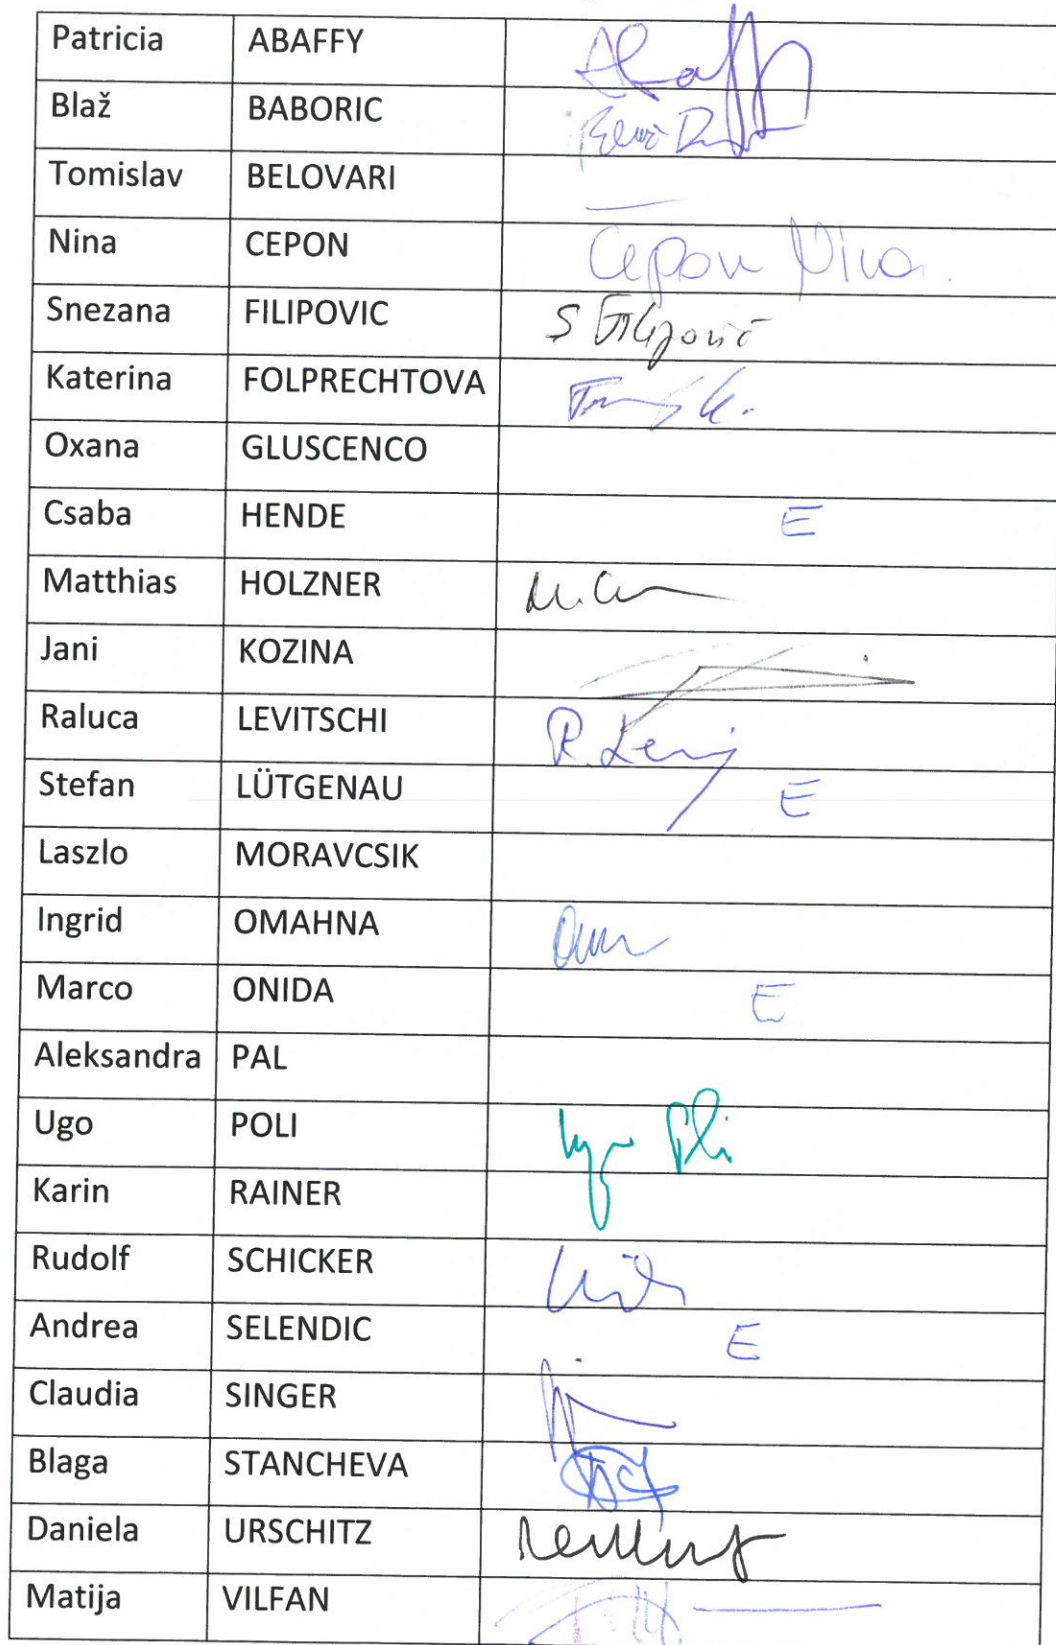 Patricia ABAFFY Abaffy
Blaž BABORIC
Tomislav BELOVARI —
Nina CEPON Čepon Nina
Snezana FILIPOVIC S Filipović
Katerina FOLPRECHTOVA
Oxana GLUSCENCO
Csaba HENDE E
Matthias HOLZNER
Jani KOZINA
Raluca LEVITSCHI
Stefan LÜTGENAU E
Laszlo MORAVCSIK
Ingrid OMAHNA
Marco ONIDA E
Aleksandra PAL
Ugo POLI Ugo Poli
Karin RAINER
Rudolf SCHICKER
Andrea SELENDIC E
Claudia SINGER
Blaga STANCHEVA
Daniela URSCHITZ
Matija VILFAN